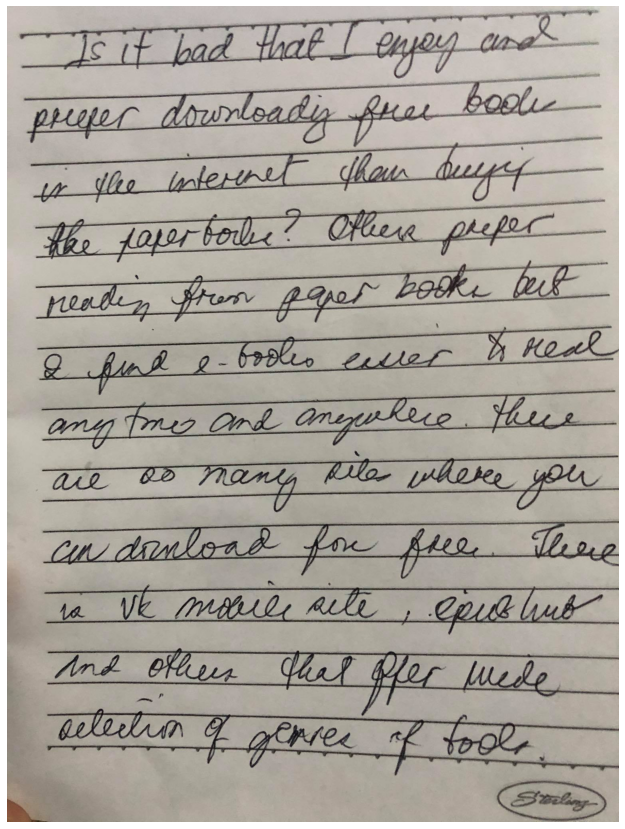 Is it bad that I enjoy and
preper downloadig free books
in the internet than buyig
the paperbooks? Others preper
reading from paper books but
I find e-books easier to read
any time and anywhere. There
are so many sites where you
can download for free. There
is VK mobile site, epubhub
and others that offer wide
selection of genres of books.
Sterling